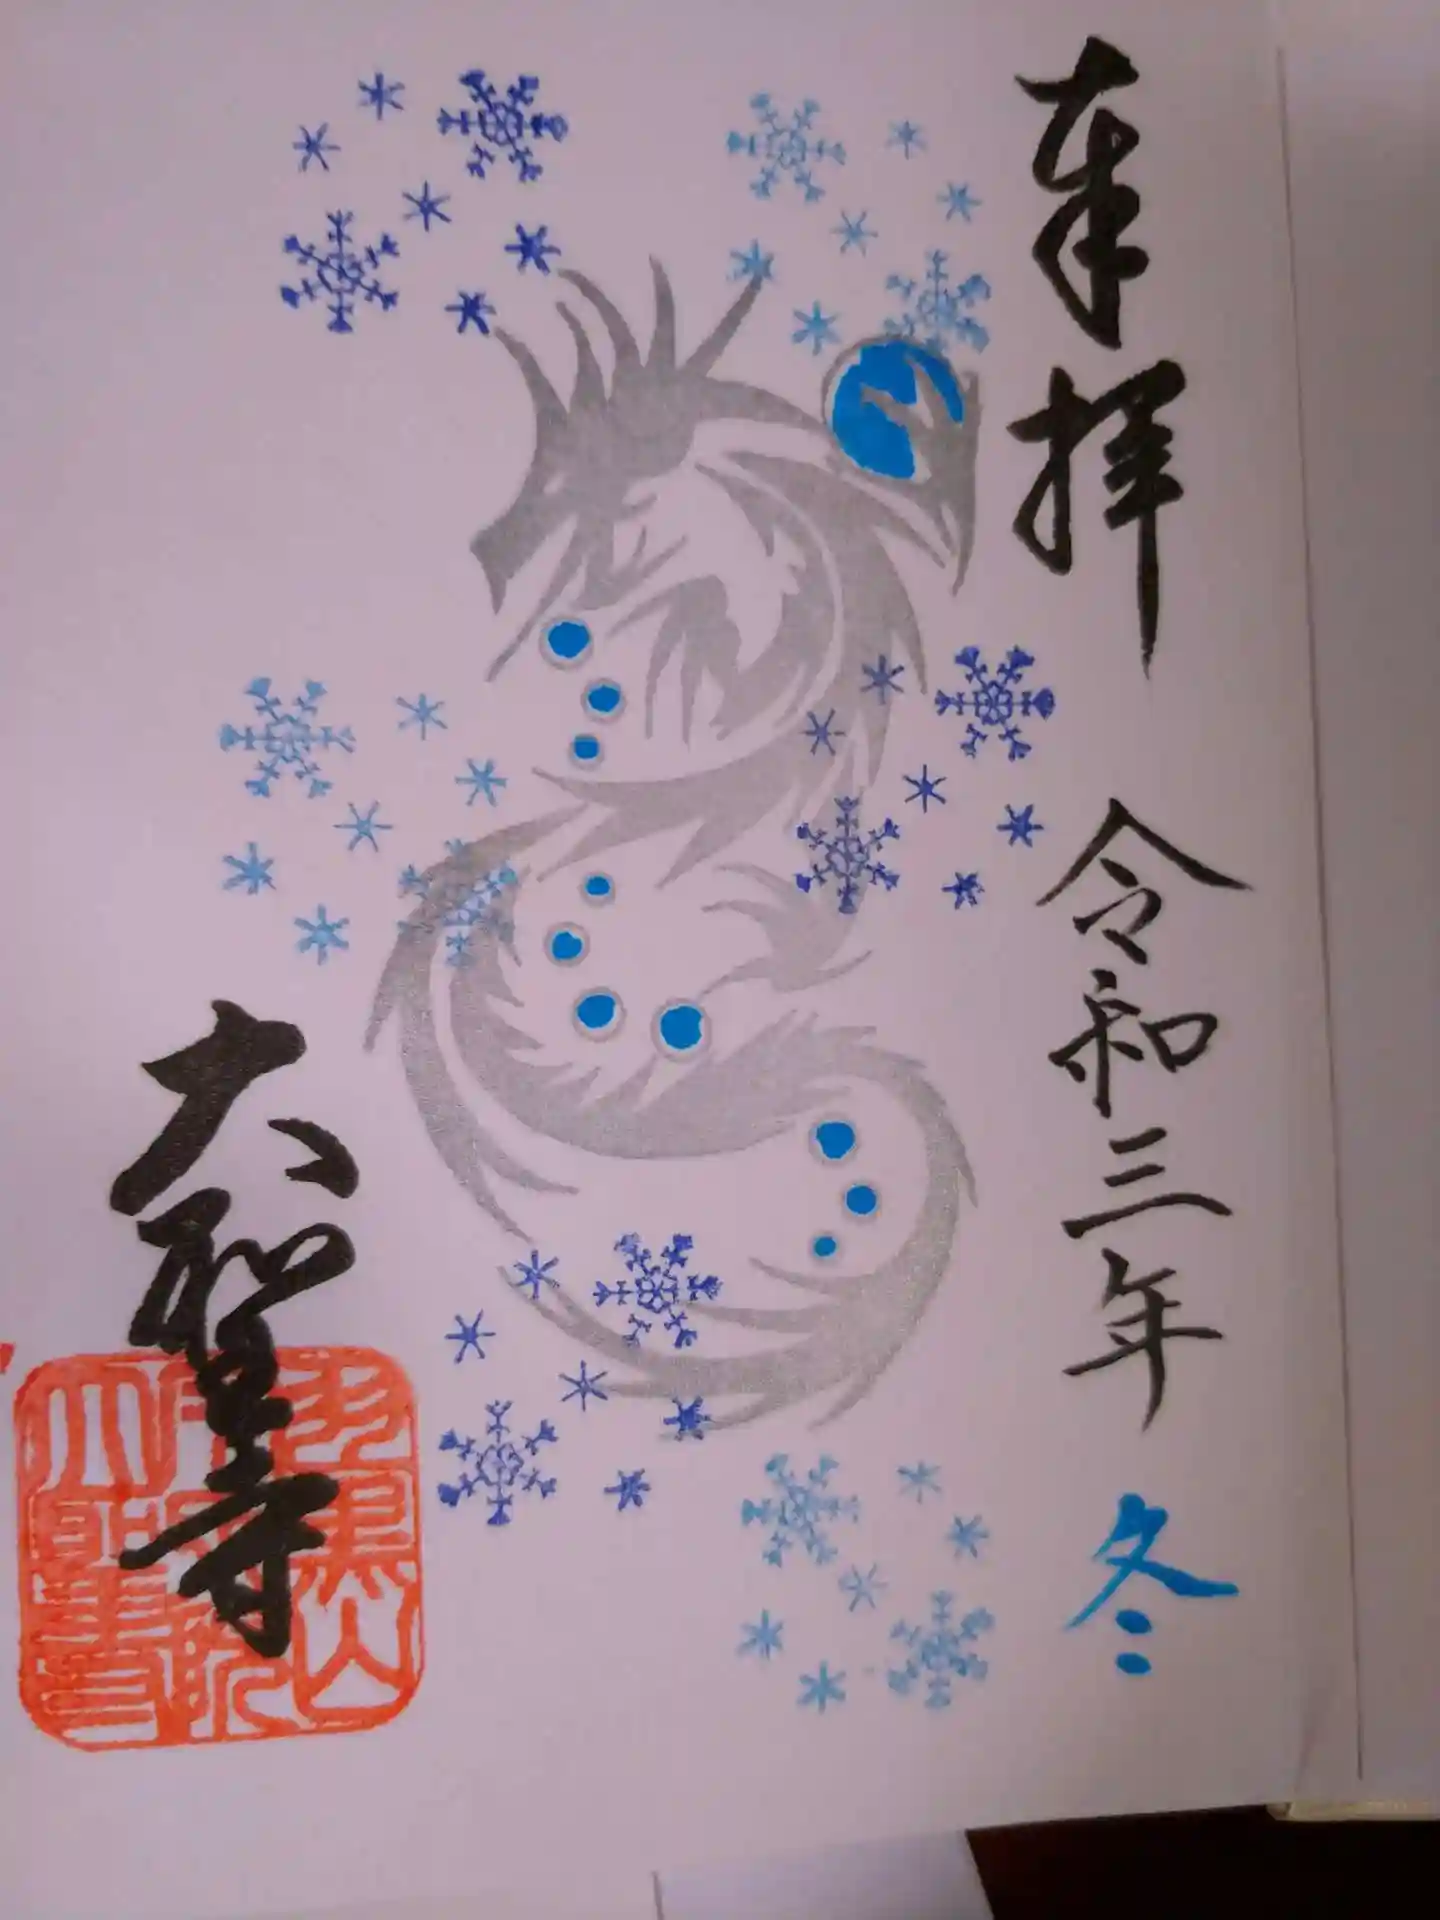 奉拝 令和三年 冬
大聖寺